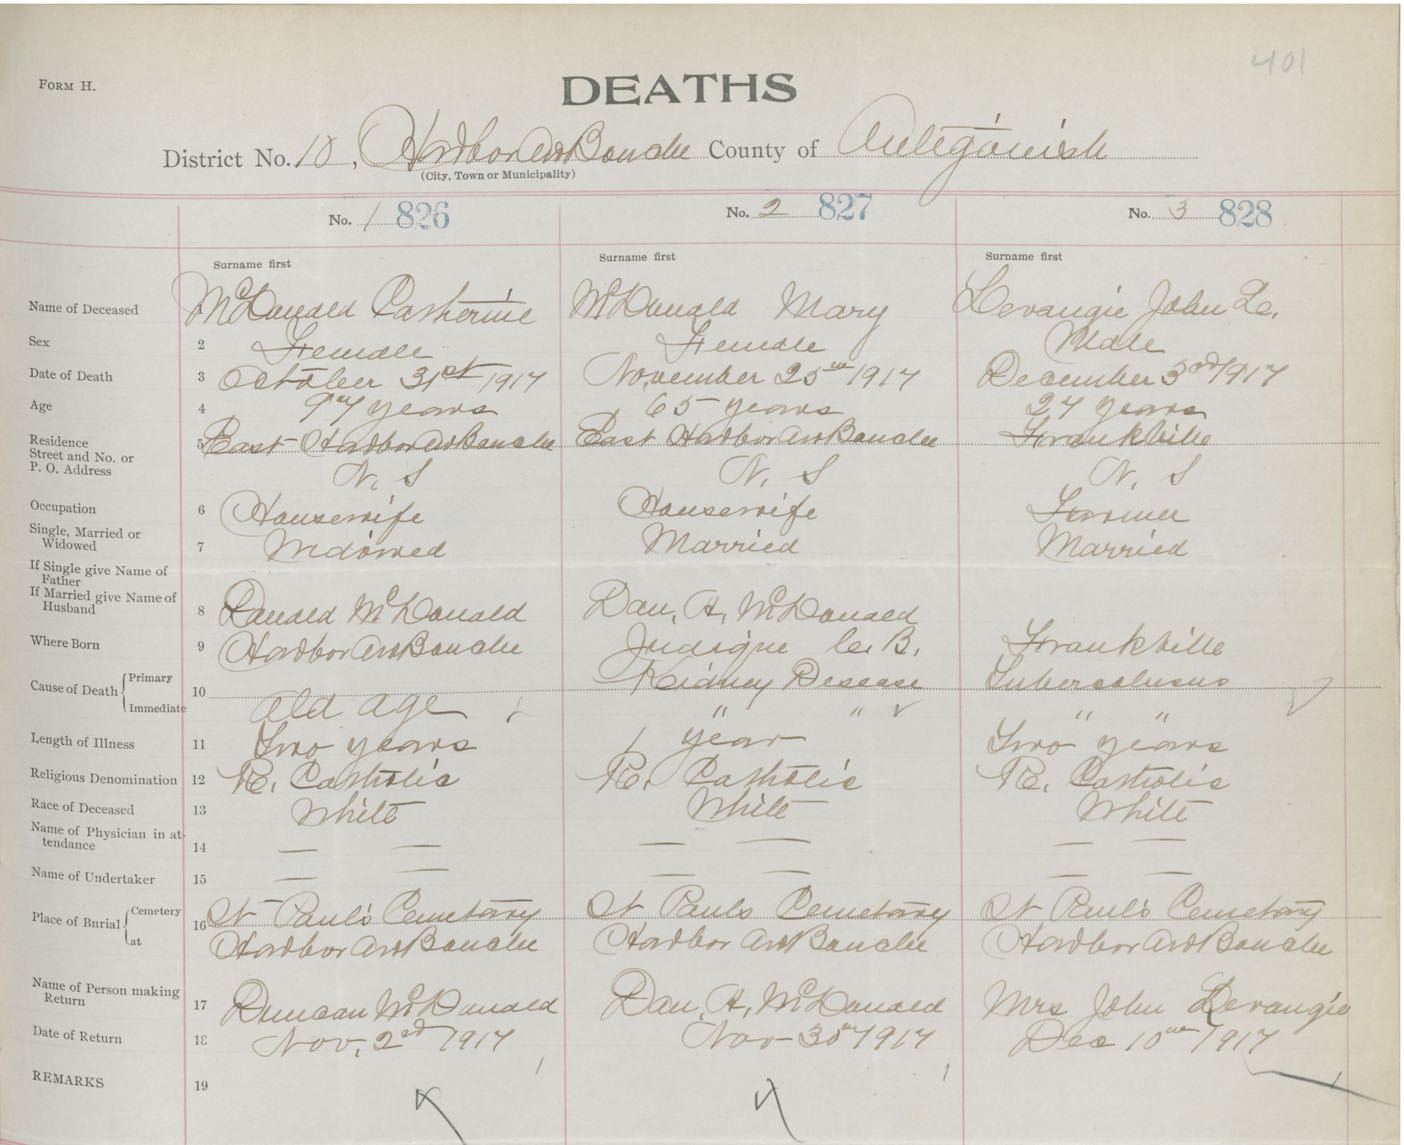 401
FORM H.
DEATHS
District No. 18, Harbor Au Bouche County of Antigonish
(City, Town or Municipality)
No. 1 826 No. 2 827 No. 3 828
Surname first Surname first Surname first
Name of Deceased McDonald Catherine McDonald Mary Levangie John
Sex 2 Female Female Male
Date of Death 3 October 31st 1917 November 25th 1917 December 3rd 1917
Age 4 97 years 65 years 27 years
Residence 5 East Harbor Au Bouche East Harbor Au Bouche Frankville
Street and No. or
P. O. Address N. S N. S N. S
Occupation 6 Housewife Housewife Farmer
Single, Married or
Widowed 7 Widowed Married Married
If Single give Name of
Father
If Married give Name of
Husband 8 Ranald McDonald Dan. A. McDonald
Where Born 9 Harbor Au Bouche Judique C. B. Frankville
Cause of Death Primary 10 Kidney Desease Tuberculosus
Immediate Old age " " " "
Length of Illness 11 Two years 1 year Two years
Religious Denomination 12 R. Catholic R. Catholic R. Catholic
Race of Deceased 13 White White White
Name of Physician in at-
tendance 14 — — — — — —
Name of Undertaker 15 — — — — — —
Place of Burial Cemetery 16 St Paul's Cemetarry St Pauls Cemetarry St Paul's Cemetarry
at Harbor Au Bouche Harbor Au Bouche Harbor Au Bouche
Name of Person making
Return 17 Duncan McDonald Dan. A. McDonald Mrs John Levangie
Date of Return 18 Nov. 2nd 1917 Nov 30th 1917 Dec 10th 1917
REMARKS 19